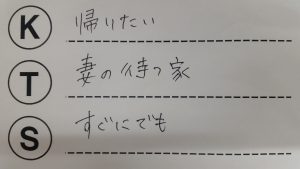 K 帰りたい
T 妻の待つ家
S すぐにでも